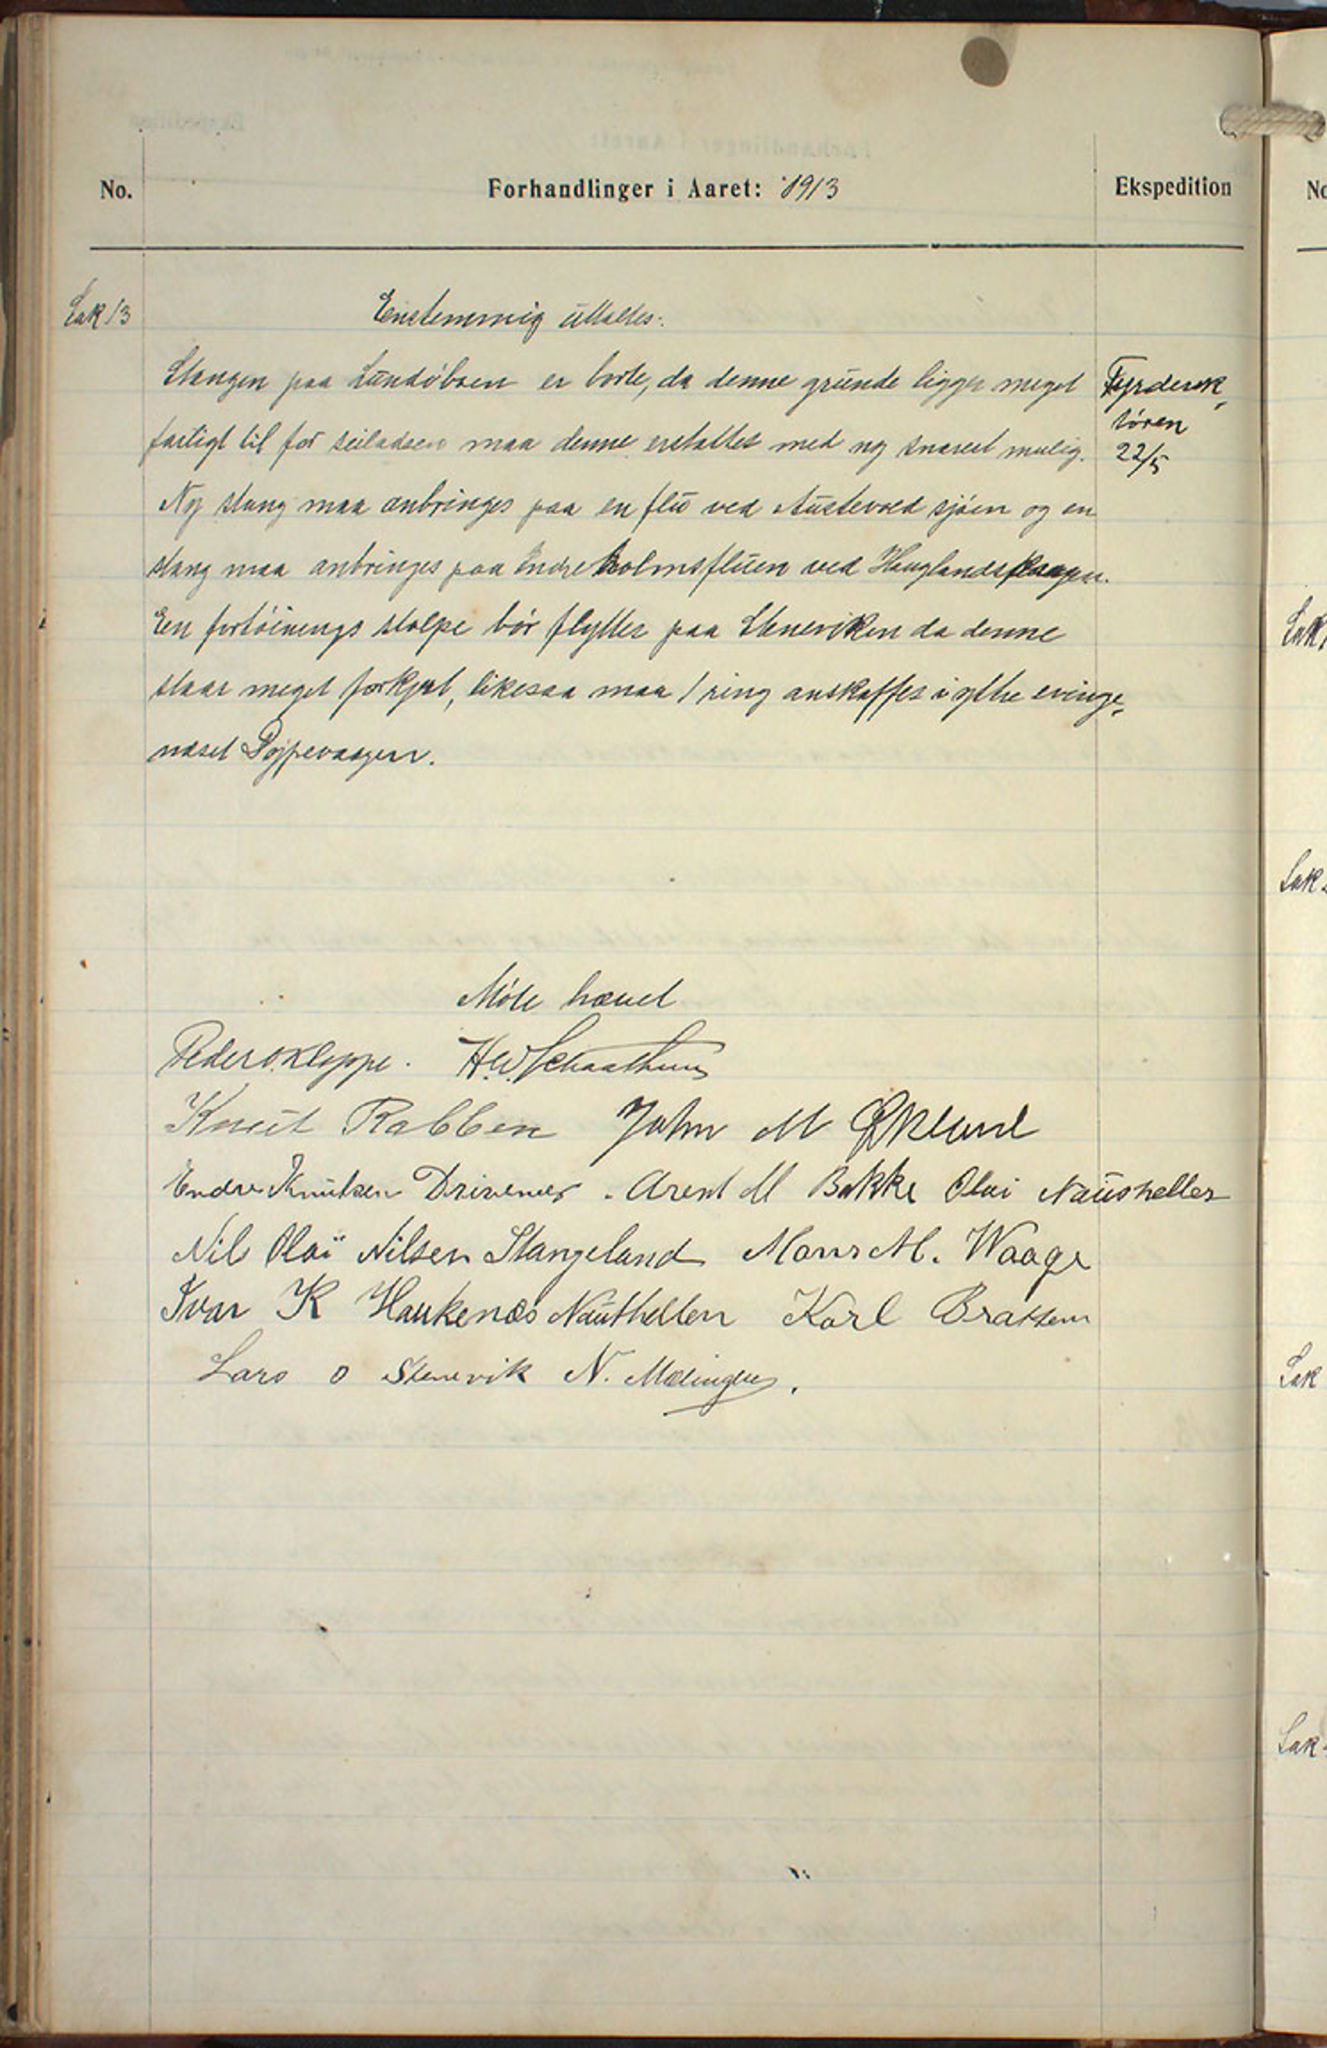 No.
Forhandlinger i Aaret: 1913
Ekspedition
Sak 13
Enstemmig uttaltes:
Stangen paa Lundøboen er borte, da denne grunde ligger meget
farligt til for seiladsen maa denne erstattes med ny snarest mulig.
Ny stang maa anbringes paa en flu ved Austevold sjøen og en
stang maa anbringes paa Endreholmsfluen ved
En fortöinings stolpe bör flyttes paa Steneviken da denne
staar meget forkjert, likesaa maa 1 ring anskaffes i ytre
næset
Fyrdirek-
tören
22/5
Møte hævet
Peder O. Kleppe. H. W. Schaathun
Knut Rabben John M Økland
Endre Knutsen Drivenes. Arent M Bakke Olai Naushellen
Nils Olai Nilsen Stangeland Mons M. Waage
Ivar K Haukenæs Nauthellen Karl Brattem
Lars O Stenevik N. Mølingen.
No
Sak
Sak
Sak
Sak